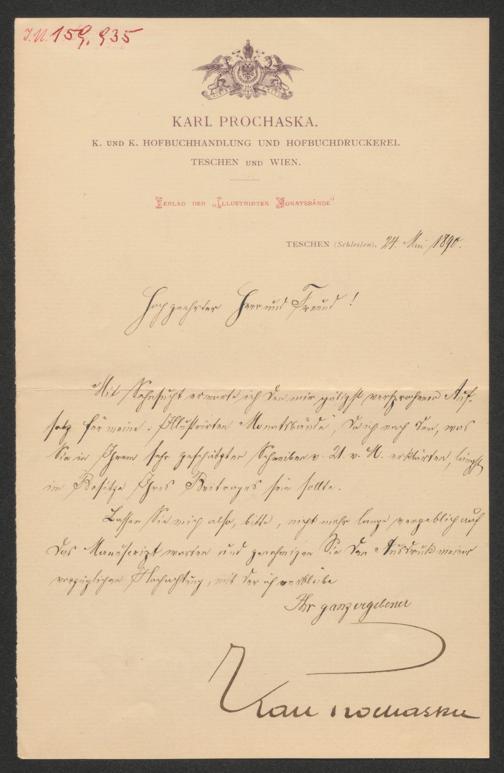 I.N. 159.935
KARL PROCHASKA.
K. UND K. HOFBUCHHANDLUNG UND HOFBUCHDRUCKEREI.
TESCHEN UND WIEN.
VERLAG DER „ILLUSTRIRTEN MONATSBÄNDE“
TESCHEN (Schlesien), 24. Mai 1890.
Hochgeehrter Herr und Freund!
Mit Sehnsucht erwarte ich den mir gütigst versprochenen Auf-
satz für meine „Illustrirten Monatsbände“, da ich nach dem, was
Sie in Ihrem sehr geschätzten Schreiben v. 21. v. M. erklärten, längst
im Besitze Ihres Beitrages sein sollte.
Lassen Sie mich also, bitte, nicht mehr lange vergeblich auf
das Manuscript warten und genehmigen Sie den Ausdruck meiner
vorzüglichen Hochachtung, mit der ich verbleibe
Ihr ganz ergebener
Karl Prochaska